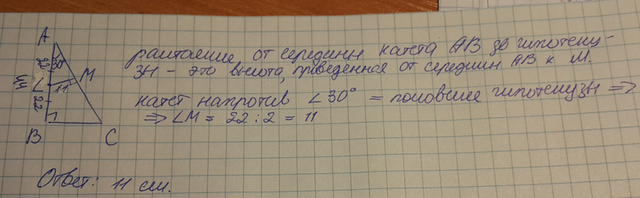 A
22
30
M
44
L
11
22
B
C
расстояние от середины катета AB до гипотену-
зы - это высота, приведённая от середины AB к M.
катет напротив ∠30° = половине гипотенузы ⇒
⇒ LM = 22 : 2 = 11
Ответ: 11 см.